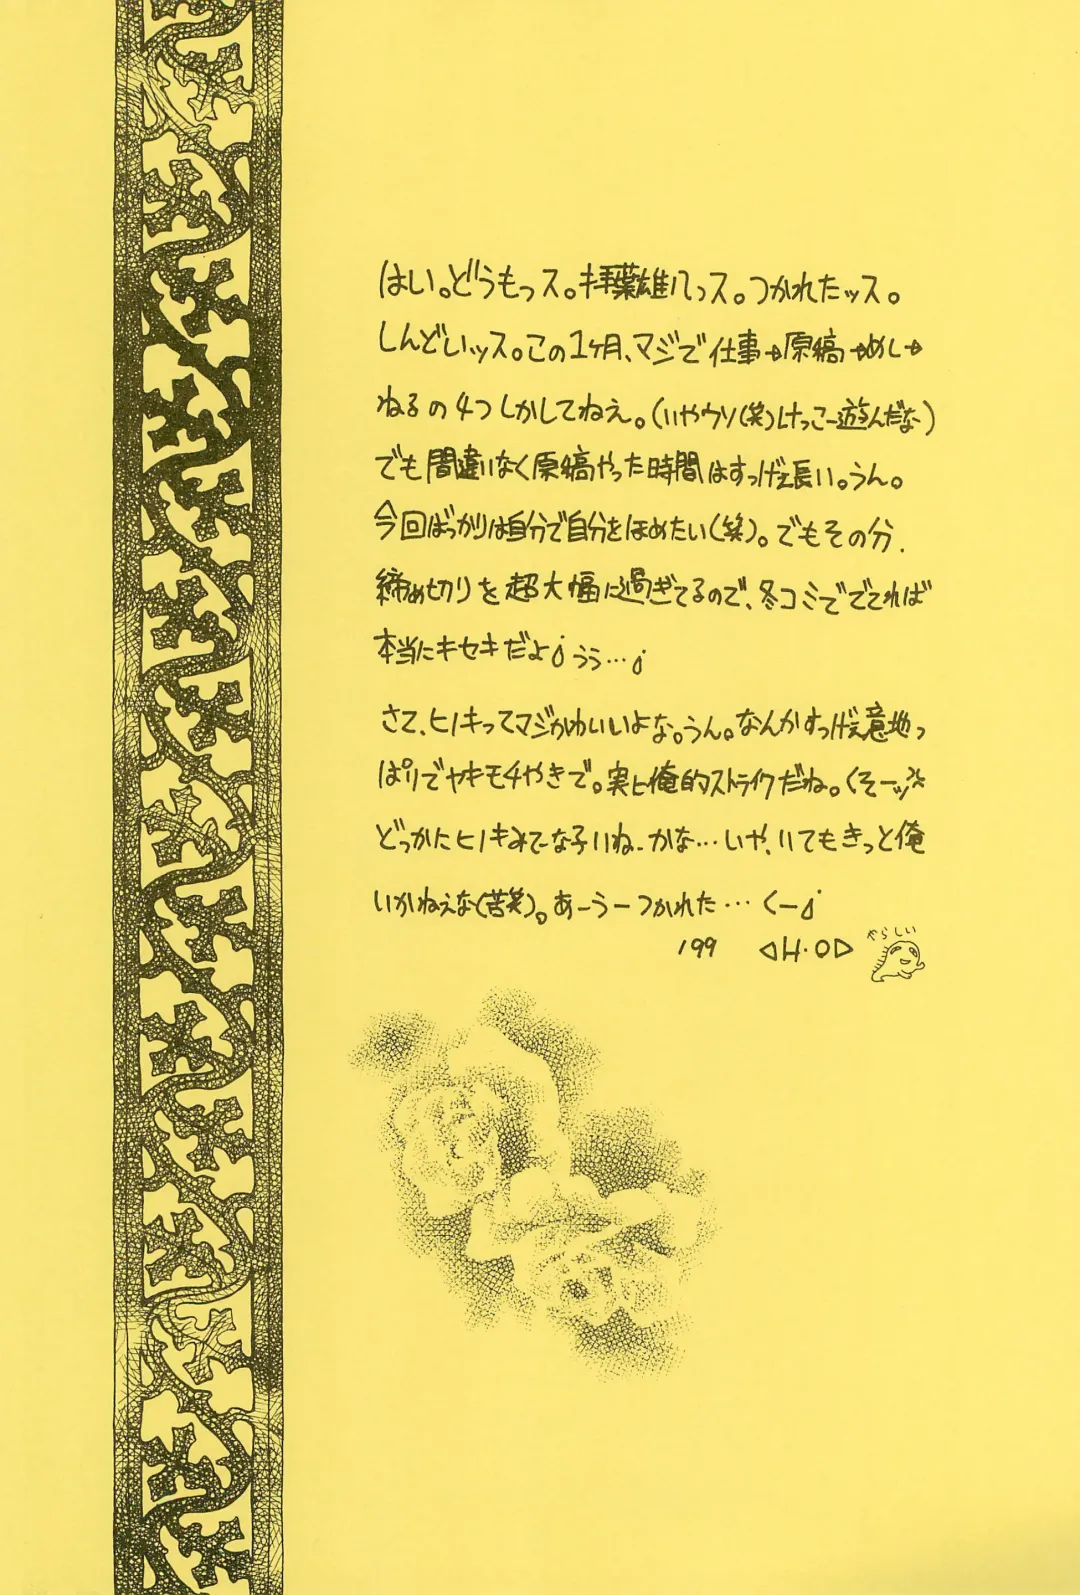 はい。どうもっス。拝葉雄ハっス。つかれたッス。
しんどいッス。この1ヶ月、マジで仕事→原稿→めし→
ねるの4つしかしてねえ。(いやウソ(笑)けっこー遊んだなー)
でも間違いなく原稿やった時間はすっげェ長い。うん。
今回ばっかりは自分で自分をほめたい(笑)。でもその分、
締め切りを超大幅に過ぎてるので、冬コミででてれば
本当にキセキだよ うう…
さて、ヒノキってマジかわいいよな。うん。なんかすっげえ意地っ
ぱりでヤキモチやきで。実に俺的ストライクだね。くそーッ
どっかにヒノキみてーな子いねーかな…いや、いてもきっと俺
いかねえな(苦笑)。あーうーつかれた…くー
'99 ◁H・O▷ やらしい